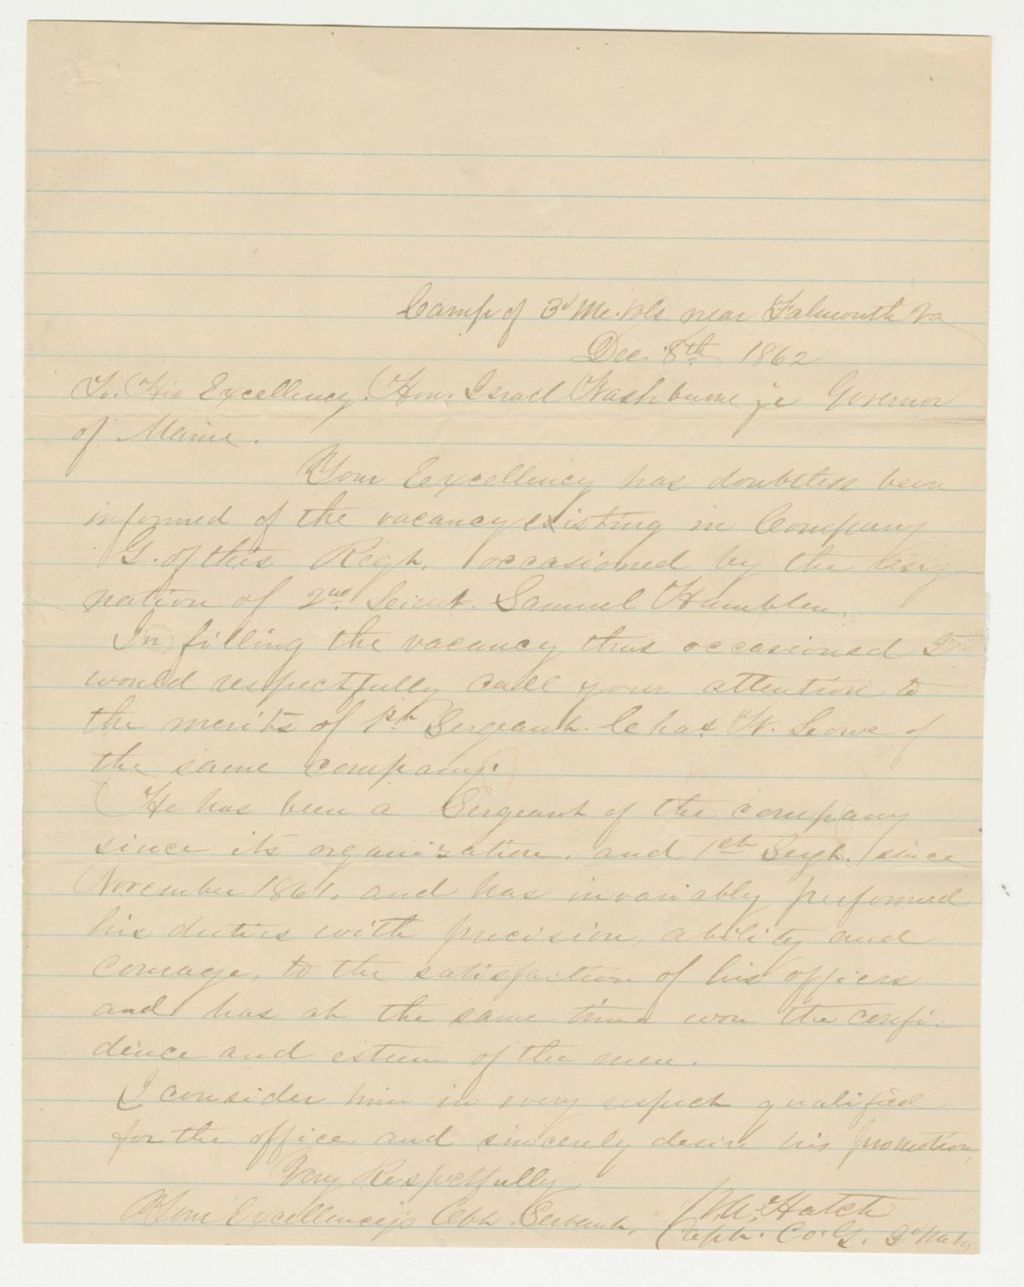 Camp of 3d Me. Vols near Falmouth Va
Dec. 8th 1862
To. His Excellency, Hon. Israel Washburne jr Governor
of Maine.
Your Excellency has doubtless been
informed of the vacancy existing in Company
G. of this Regt. occasioned by the resig
nation of 2nd Lieut. Samuel Hamblen.
In filling the vacancy thus occasioned I
would respectfully call your attention to
the merits of 1st Sergeant. Chas. W. Lowe of
the same company.
He has been a Sergeant of the company
since its organization, and 1st Sergt. since
November 1861, and has invariably performed
his duties with precision, ability and
courage, to the satisfaction of his officers
and has at the same time won the confi-
dence and esteem of the men.
I consider him in every respect qualified
for the office, and sincerely desire his promotion,
Very Respectfully
Your Excellency's Obt. Servant,
Hatch
Capt. Co. G. 3d